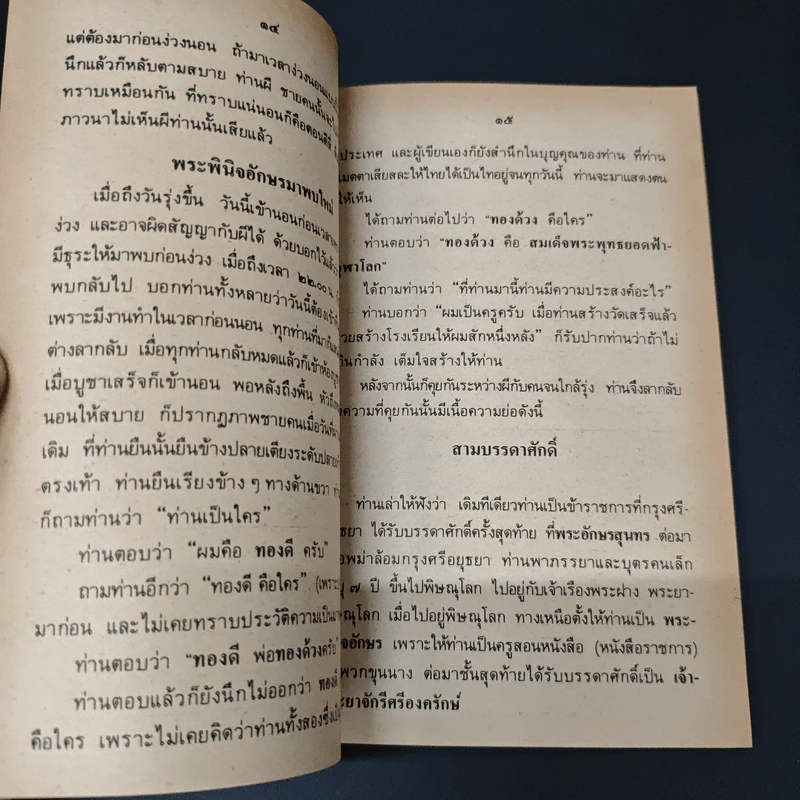 ๑๔
แต่ต้องมาก่อนง่วงนอน ถ้ามาเวลาง่วงนอน
นึกแล้วก็หลับตามสบาย ท่านผี ชายคนนั้น
ทราบเหมือนกัน ที่ทราบแน่นอนก็คือตอนตีสี่
ภาวนาไม่เห็นผีท่านนั้นเสียแล้ว
พระพินิจอักษรมาพบใหม่
เมื่อถึงวันรุ่งขึ้น วันนี้เข้านอนก่อนเวลา
ง่วง และอาจผิดสัญญากับผีได้ ด้วยบอกไว้แล้ว
มีธุระให้มาพบก่อนง่วง เมื่อถึงเวลา ๒๒.๐๐ น
พบกลับไป บอกท่านทั้งหลายว่าวันนี้ต้อง
เพราะมีงานทำในเวลาก่อนนอน ทุกท่านที่มา
ต่างลากลับ เมื่อทุกท่านกลับหมดแล้วก็เข้าห้อง
เมื่อบูชาเสร็จก็เข้านอน พอหลังถึงพื้น หัวถึง
นอนให้สบาย ก็ปรากฏภาพชายคนเมื่อวันที่
เดิม ที่ท่านยืนนั้นยืนข้างปลายเตียงระดับปลาย
ตรงเท้า ท่านยืนเรียงข้าง ๆ ทางด้านขวา
ก็ถามท่านว่า "ท่านเป็นใคร"
ท่านตอบว่า "ผมคือ ทองดี ครับ"
ถามท่านอีกว่า "ทองดี คือใคร" (เพราะ
มาก่อน และไม่เคยทราบประวัติความเป็นมา
ท่านตอบว่า "ทองดี พ่อทองด้วงครับ"
ท่านตอบแล้วก็ยังนึกไม่ออกว่า ทองดี
คือใคร เพราะไม่เคยคิดว่าท่านทั้งสองซึ่ง
๑๕
ประเทศ และผู้เขียนเองก็ยังสำนึกในบุญคุณของท่าน ที่ท่าน
เมตตาเสียสละให้ไทยได้เป็นไทอยู่จนทุกวันนี้ ท่านจะมาแสดงตน
ให้เห็น
ได้ถามท่านต่อไปว่า "ทองด้วง คือใคร"
ท่านตอบว่า "ทองด้วง คือ สมเด็จพระพุทธยอดฟ้า-
จุฬาโลก"
ได้ถามท่านว่า "ที่ท่านมานี้ท่านมีความประสงค์อะไร"
ท่านบอกว่า "ผมเป็นครูครับ เมื่อท่านสร้างวัดเสร็จแล้ว
ช่วยสร้างโรงเรียนให้ผมสักหนึ่งหลัง" ก็รับปากท่านว่าถ้าไม่
เกินกำลัง เต็มใจสร้างให้ท่าน
หลังจากนั้นก็คุยกันระหว่างผีกับคนจนใกล้รุ่ง ท่านจึงลากลับ
ความที่คุยกันนั้นมีเนื้อความย่อดังนี้
สามบรรดาศักดิ์
ท่านเล่าให้ฟังว่า เดิมทีเดียวท่านเป็นข้าราชการที่กรุงศรี-
อยุธยา ได้รับบรรดาศักดิ์ครั้งสุดท้าย ที่พระอักษรสุนทร ต่อมา
พม่าล้อมกรุงศรีอยุธยา ท่านพาภรรยาและบุตรคนเล็ก
๗ ปี ขึ้นไปพิษณุโลก ไปอยู่กับเจ้าเรืองพระฝาง พระยา-
พิษณุโลก เมื่อไปอยู่พิษณุโลก ทางเหนือตั้งให้ท่านเป็น พระ-
พินิจอักษร เพราะให้ท่านเป็นครูสอนหนังสือ (หนังสือราชการ)
พวกขุนนาง ต่อมาชั้นสุดท้ายได้รับบรรดาศักดิ์เป็น เจ้า-
พระยาจักรีศรีองครักษ์